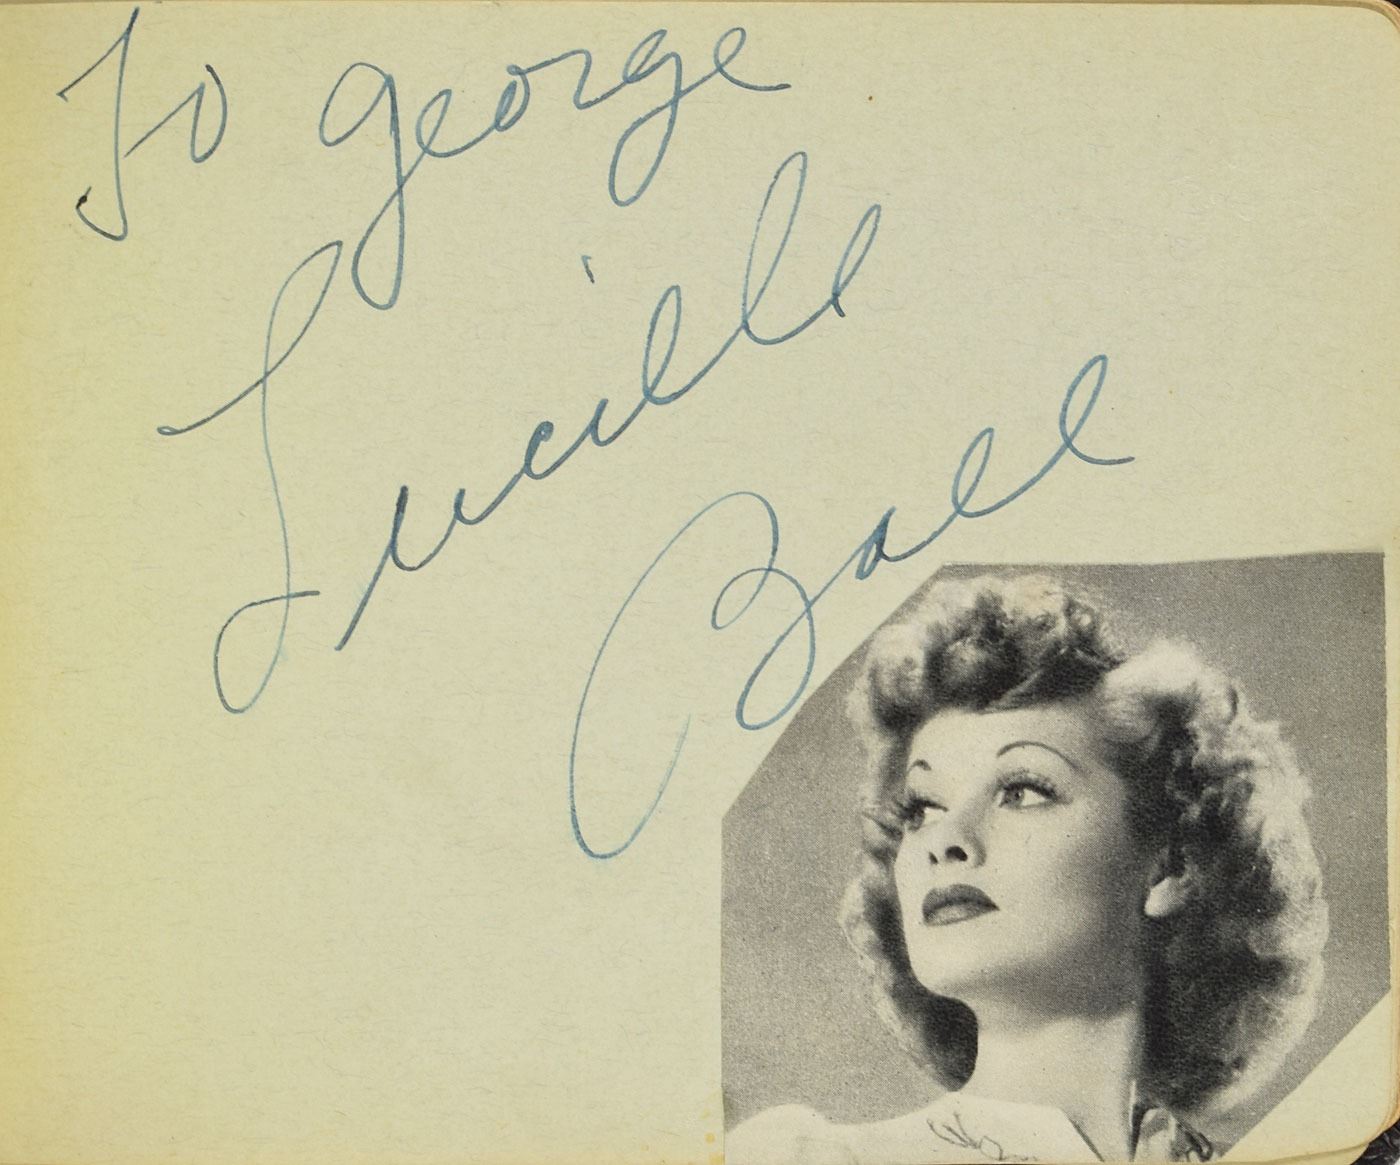 To george
Lucille
Ball